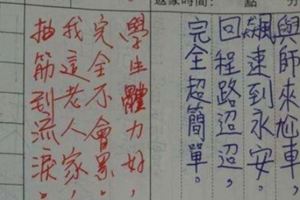 返家時間：　點　分
與師來尬車，
飆速到永安。
回程路迢迢，
完全超簡單。
學生體力好，
完全不會累。
我這老人家，
抽筋到流淚。